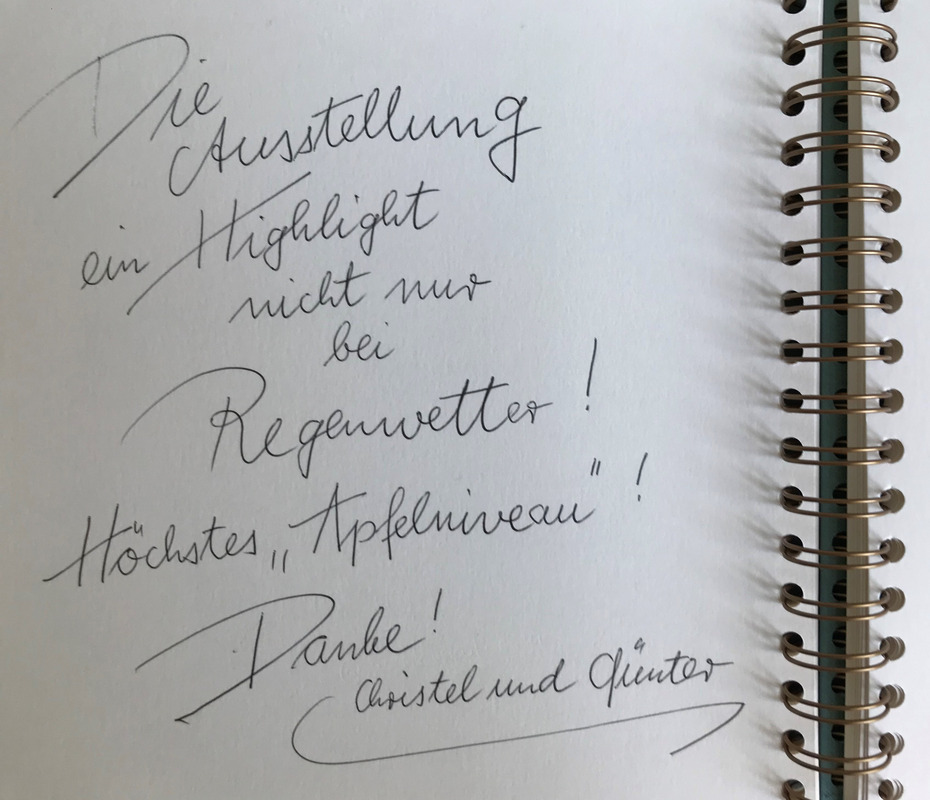 Die
Ausstellung
ein Highlight
nicht nur
bei
Regenwetter!
Höchstes „Apfelniveau"!
Danke!
Christel und Günter